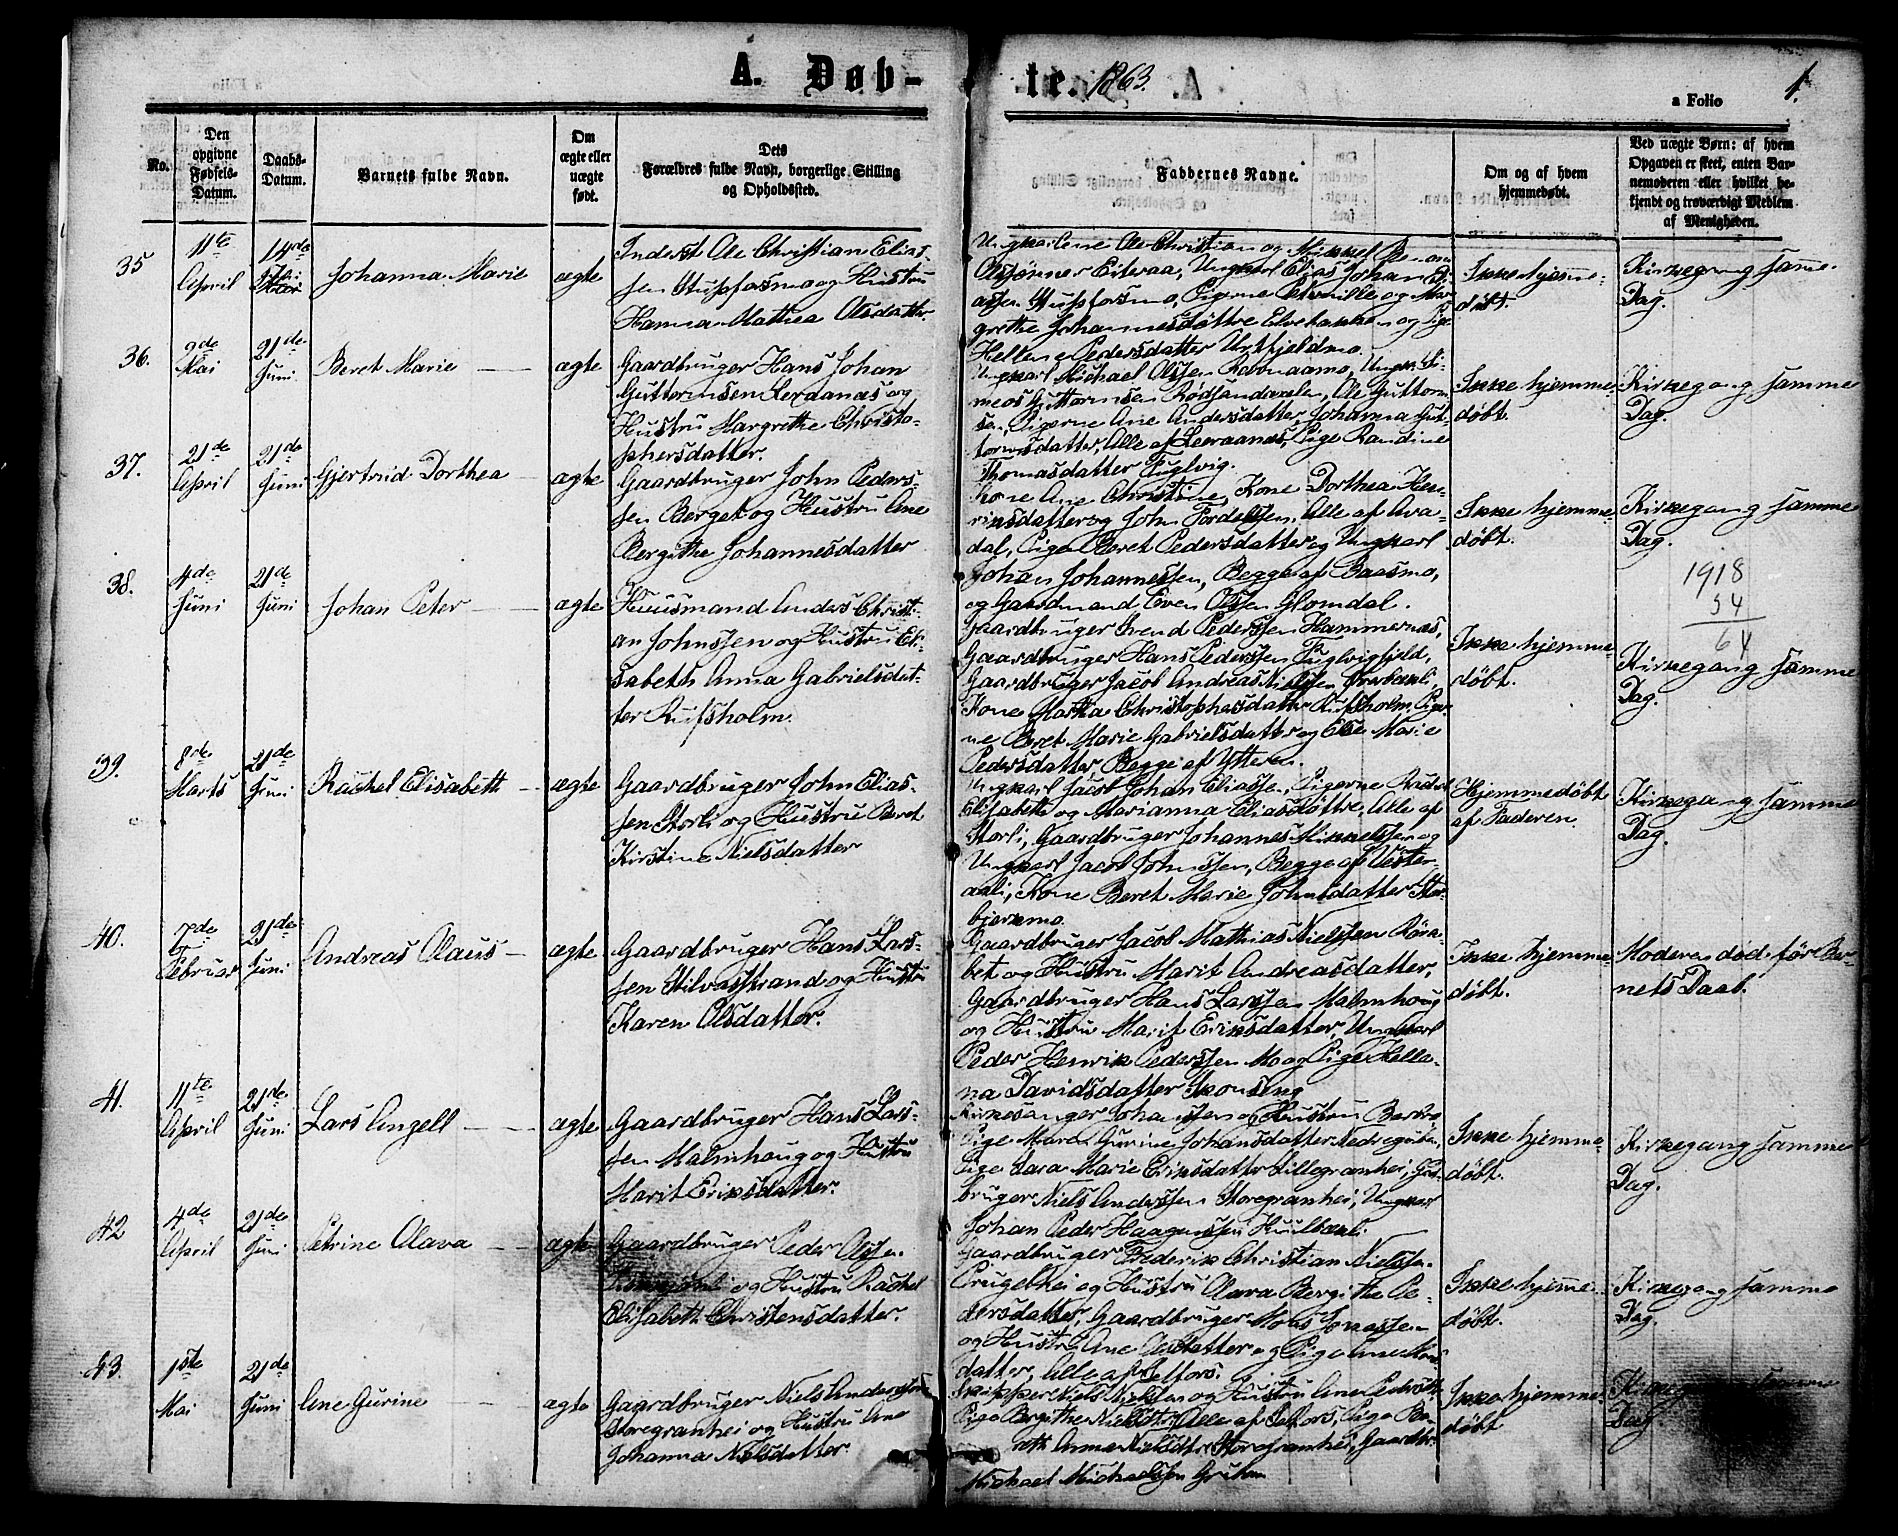 A. Døb-te. 1863.
a Folio 1.
No.
Den opgivne Fødsels-Datum.
Daabs-Datum.
Barnets fulde Navn.
Om ægte eller uægte født.
Dets Forældres fulde Navn, borgerlige Stilling og Opholdssted.
Faddernes Navne.
Om og af hvem hjemmedøbt.
Ved uægte Børn: af hvem Opgaven er skeet, enten Barnemoderen eller hvilket bekjendt og troværdigt Medlem af Menigheden.
35
11te April
14de
Johanna Marie
ægte
Inderst Ole Christian Elias-
sen Stupforsmo og Hustru
Hanna Mathea Olsdatter.
Ungkarlene Ole Christian og Mikkel Benoni
Olssønner Eiteraa, Ungkarl Elias Johan Eli-
assen Stupforsmo, Pigerne Petronille og Mar-
grethe Johannesdøttre Elvebakken og Pige
Hellene Pedersdatter Urtfjeldmo.
Ikke hjemme-
døbt.
Kirkegang samme
Dag.
36.
9de Mai
21de Juni
Beret Marie
ægte
Gaardbruger Hans Johan
Guttormsen Leraanæs og
Hustru Margrethe Christo-
phersdatter.
Ungkarl Michael Olssen Ravnaamo, Ungk. Si-
meos Guttormsen Rødsandaxelen, Ole Guttorm-
sen, Pigerne Ane Andersdatter, Johanna Gut-
tormsdatter, Alle af Leeraanæs, Pige Randine
Thomasdatter Fuglvig.
Ikke hjemme-
døbt.
Kirkegang samme
Dag.
37.
21de April
21de Juni
Gjertrud Dorthea
ægte
Gaardbruger John Peders-
sen Berget og Hustru Ane
Bergithe Johannesdatter
Kone Ane Christine, Kone Dorthea Hen-
riksdatter og John Fordelssen, Alle af Ava-
dal, Pige Beret Pedersdatter og Ungkarl
Johan Johannessen, Begge af Baasmo,
og Gaardmand Even Olssen Glomdal.
Ikke hjemme-
døbt.
Kirkegang samme
Dag.
1918
54
64
38.
4de Juni
21de Juni
Johan Peter
ægte
Huusmand Anders Christi-
an Johnssen og Hustru Eli-
sabeth Anna Gabrielsdat-
ter Rufsholm.
Gaardbruger Svend Pederssen Hammernæs,
Gaardbruger Hans Pederssen Fuglvigfjeld,
Gaardbruger Jacob Andreas Nielssen
Kone Martha Christophersdatter Rufsholm, Piger-
ne Beret Marie Gabrielsdatter og Else Marie
Pedersdatter Begge af Ytteren.
Ikke hjemme-
døbt.
Kirkegang samme
Dag.
39.
8de Marts
21de Juni
Rachel Elisabeth
ægte
Gaardbruger John Elias-
sen Storli og Hustru Beret
Kirstine Nielsdatter
Ungkarl Jacob Johan Eliassen, Pigerne Rachel
Elisabeth og Marianna Eliasdøttre, Alle af
Storli, Gaardbruger Johannes Mikkelssen og
Ungkarl Jacob Johnssen, Begge af Vester-
aali, Kone Beret Marie Johnsdatter Stor-
bjerkmo.
Hjemmedøbt
af Faderen.
Kirkegang samme
Dag.
40.
7de Februar
21de Juni
Andreas Olaus
ægte
Gaardbruger Hans Lars-
sen Stilvasstrand og Hustru
Karen Olsdatter.
Gaardbruger Jacob Mathias Nielssen Røva-
bet og Hustru Marit Andreasdatter,
Gaardbruger Hans Larssen Malmhoug
og Hustru Marit Eriksdatter, Ungkarl
Peder Henrik Pederssen Mo og Pige Helle-
na Davidsdatter Skonseng
Ikke hjemme-
døbt.
Moderen død før Bar-
nets Daab.
41.
11te April
21de Juni
Lars Angell
ægte
Gaardbruger Hans Lars-
sen Malmhoug og Hustru
Marit Eriksdatter.
Kirkesanger Johanssen og Hustru Barbro,
Pige Maren Gurine Johansdatter
Pige Sara Marie Eriksdatter Lillegranhei, Grd-
bruger Niels Anderssen Storegranhei, Ungkarl
Johan Peder Haagenssen
Ikke hjemme-
døbt.
Kirkegang samme
Dag.
42
4de April
21de Juni
Petrine Olava
ægte
Gaardbruger Peder Olssen
og Hustru Rachel
Elisabeth Christensdatter.
Gaardbruger Frederik Christian Nielssen
Prugelhei og Hustru Olava Bergithe Pe-
dersdatter, Gaardbruger Mons Jonassen
og Hustru Ane Olsdatter og Pige Ane Mons-
datter, Alle af Selfors.
Ikke hjemme-
døbt.
Kirkegang samme
Dag.
43.
1ste Mai
21de Juni
Ane Gurine
ægte
Gaardbruger Niels Anderssen
Storegranhei og Hustru Ane
Johanna Nielsdatter.
Skipper Niels Nielsen og Hustru Ane Pedersdtr
Pige Bergithe Nielsdtr, Alle af Selfors, Pige Be-
reth Anna Nielsdtr Storegranhei, Gaardbr.
Michael Michaelssen Gruben
Ikke hjemme-
døbt
Kirkegang samme
Dag